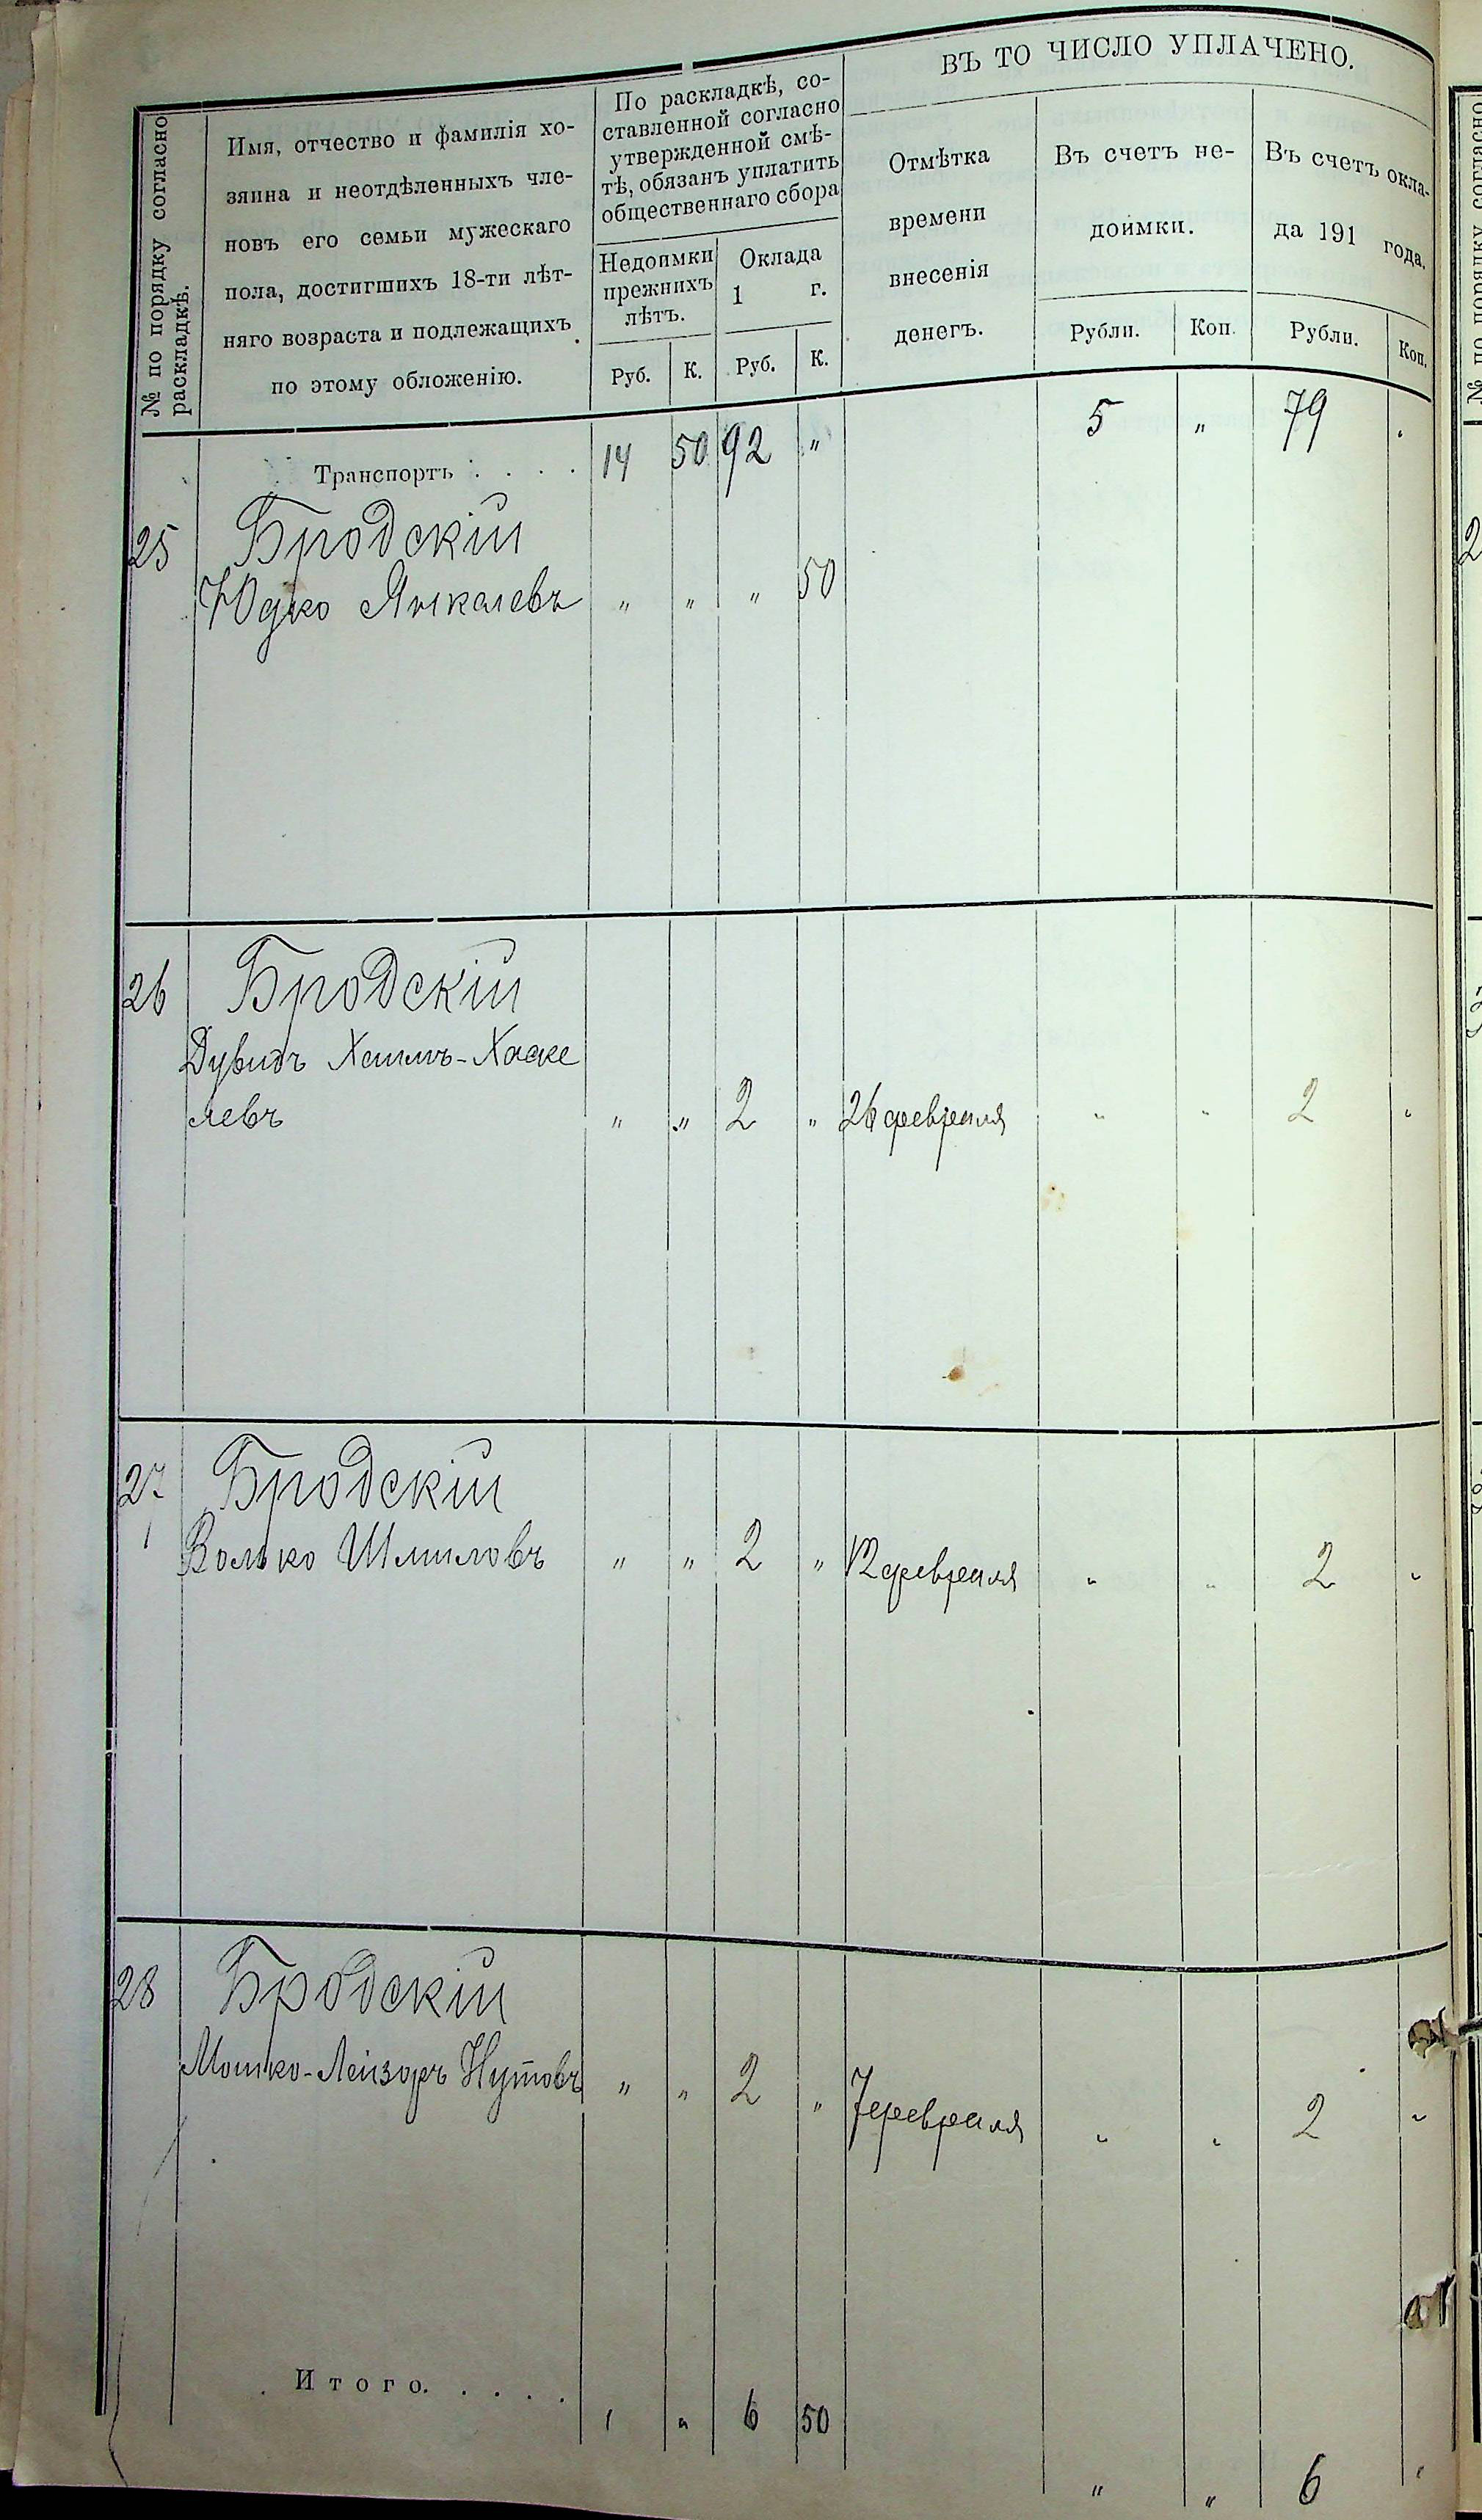 № по порядку согласно
раскладкѣ.
Имя, отчество и фамилія хо-
зяина и неотдѣленныхъ чле-
новъ его семьи мужескаго
пола, достигшихъ 18-ти лѣт-
няго возраста и подлежащихъ
по этому обложенію.
По раскладкѣ, со-
ставленной согласно
утвержденной смѣ-
тѣ, обязанъ уплатить
общественнаго сбора
Недоимки
прежнихъ
лѣтъ.
Оклада
1 г.
Руб. К. Руб. К.
ВЪ ТО ЧИСЛО УПЛАЧЕНО.
Отмѣтка
времени
внесенія
денегъ.
Въ счетъ не-
доимки.
Рубли. Коп.
Въ счетъ окла-
да 191 года.
Рубли. Коп.
Транспортъ . . . . 14 50 92 " 5 " 79 "
25 Бродскій
Юдко Янкелевъ " " " 50
26 Бродскій
Дувидъ Хаимъ-Хаске
левъ " " 2 " 26 февраля " " 2 "
27 Бродскій
Волько Шмиловъ " " 2 " 12 февраля " " 2 "
28 Бродскій
Мошко-Лейзоръ Нутовъ " " 2 " 7 февраля " " 2 "
Итого. . . . . " " 6 50 " " 6 "